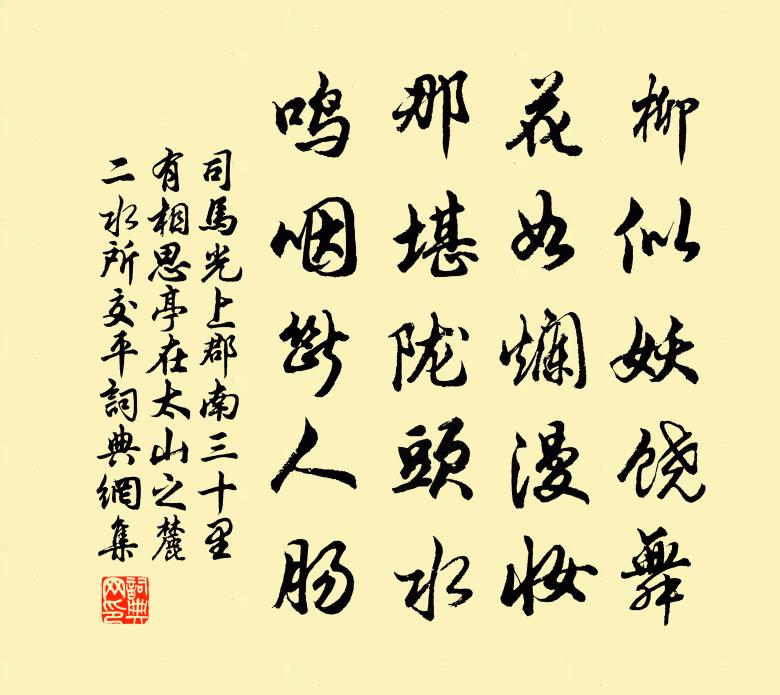 柳似妖饶舞
花如爛漫妆
那堪陇頭水
鳴咽斷人肠
司馬光上郡南三十里
有相思亭在太山之麓
二水所交平詞典網集
詞典网印